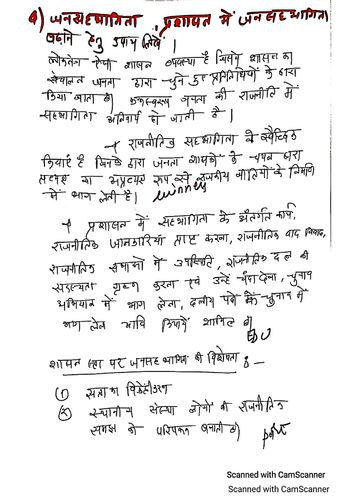 4) जनसहभागिता, प्रशासन में जनसहभागिता
बढ़ाने हेतु उपाय लिखें।
लोकतंत्र ऐसी शासन व्यवस्था है जिसमें शासन का
संचालन जनता द्वारा चुने हुए प्रतिनिधियों के द्वारा
किया जाता है। फलस्वरूप जनता की राजनीति में
सहभागिता अनिवार्य हो जाती है।
→ राजनीतिक सहभागिता वे स्वैच्छिक
क्रियाएँ हैं जिनके द्वारा जनता शासकों के चयन द्वारा
प्रत्यक्ष या अप्रत्यक्ष रूप से राजकीय नीतियों के निर्माण
में भाग लेती है।
winners
→ प्रशासन में सहभागिता के अंतर्गत कार्य,
राजनीतिक जानकारियां प्राप्त करना, राजनीतिक वाद विवाद,
राजनीतिक सभाओं में उपस्थिति, राजनीतिक दल की
सदस्यता ग्रहण करना एवं उन्हें चंदा देना, चुनाव
अभियान में भाग लेना, दलीय पदों के चुनाव में
भाग लेना आदि क्रियाएँ शामिल हैं।
EDU
शासन स्तर पर जनसहभागिता की विशेषता :—
① सत्ता का विकेंद्रीकरण
② स्थानीय संस्था लोगों की राजनीतिक
समझ को परिपक्व बनाती है।
point
Scanned with CamScanner
Scanned with CamScanner